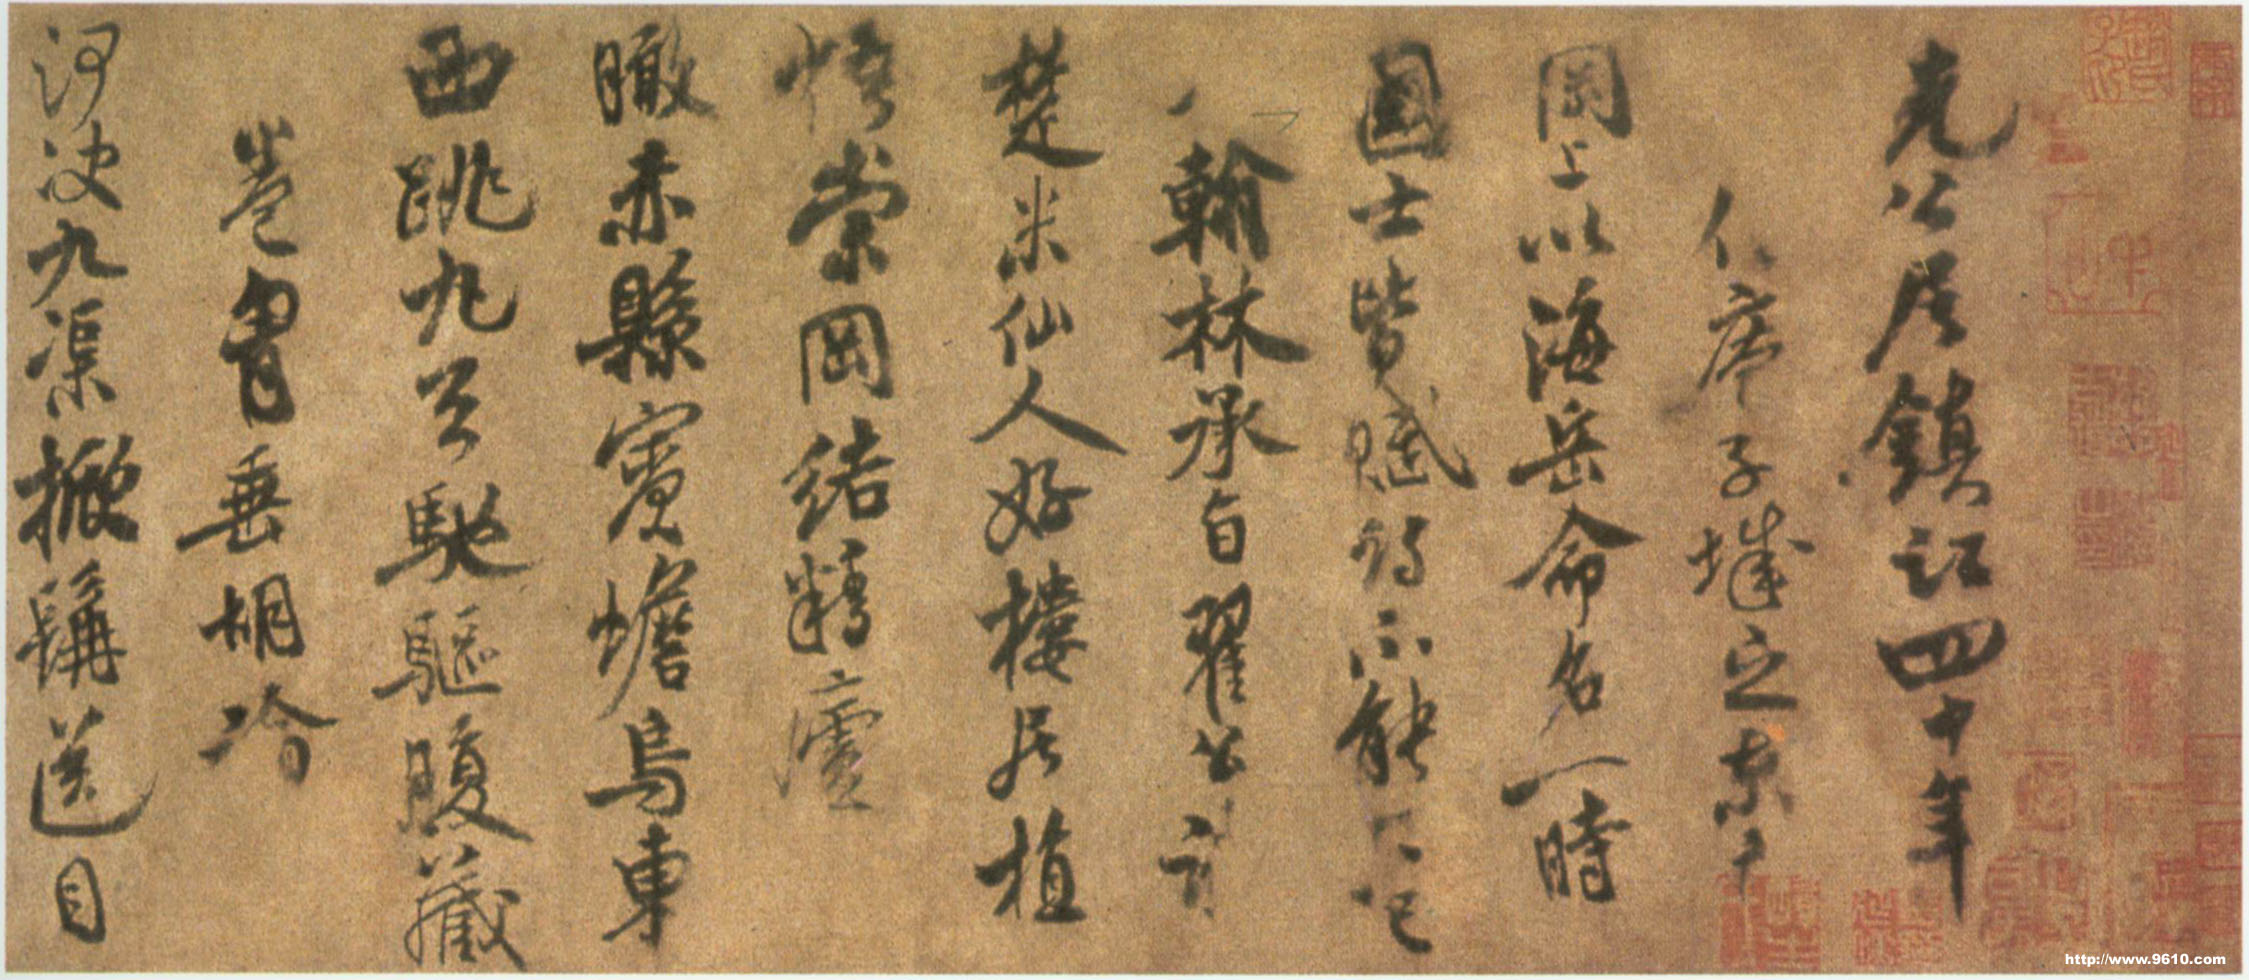 先公居鎮江四十年
作庵于城之東高
岡上以海岳命名一時
國士皆賦詩不能盡記
翰林承旨翟公詩
楚米仙人好樓居植
梧崇岡結精廬
瞰赤縣賓蟾烏東
西跳丸馳驅腹藏
卷胷垂胡論
河決九渠掀髯送目
http://www.9610.com